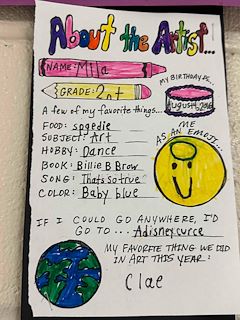 About the Artist...
NAME: Mila
MY BIRTHDAY IS...
GRADE: 2nt
August 4, 2016
A few of my favorite things...
FOOD: spgedie
SUBJECT: Art
HOBBY: Dance
BOOK: Billie B Brow
SONG: Thats so true
COLOR: Baby blue
ME
AS AN EMOJI...
IF I COULD GO ANYWHERE, I'D
GO TO... A disney curce
MY FAVORITE THING WE DID
IN ART THIS YEAR:
Clae